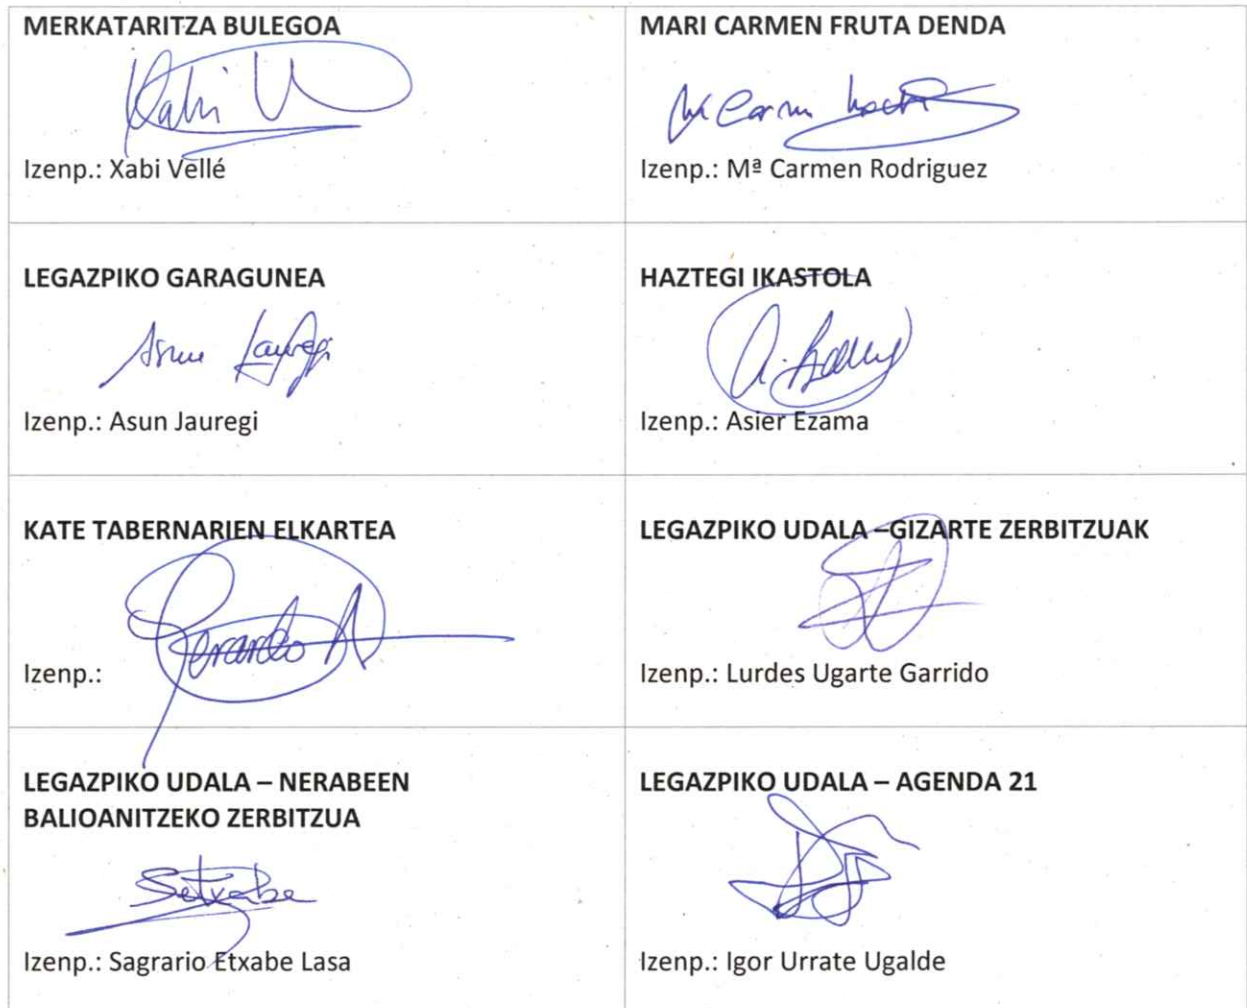 MERKATARITZA BULEGOA
Xabi V
Izenp.: Xabi Vellé
MARI CARMEN FRUTA DENDA
Mª Carmen
Izenp.: Mª Carmen Rodriguez
LEGAZPIKO GARAGUNEA
Asun Jauregi
Izenp.: Asun Jauregi
HAZTEGI IKASTOLA
Izenp.: Asier Ezama
KATE TABERNARIEN ELKARTEA
Gerardo A
Izenp.:
LEGAZPIKO UDALA –GIZARTE ZERBITZUAK
Izenp.: Lurdes Ugarte Garrido
LEGAZPIKO UDALA – NERABEEN
BALIOANITZEKO ZERBITZUA
SEtxabe
Izenp.: Sagrario Etxabe Lasa
LEGAZPIKO UDALA – AGENDA 21
Izenp.: Igor Urrate Ugalde